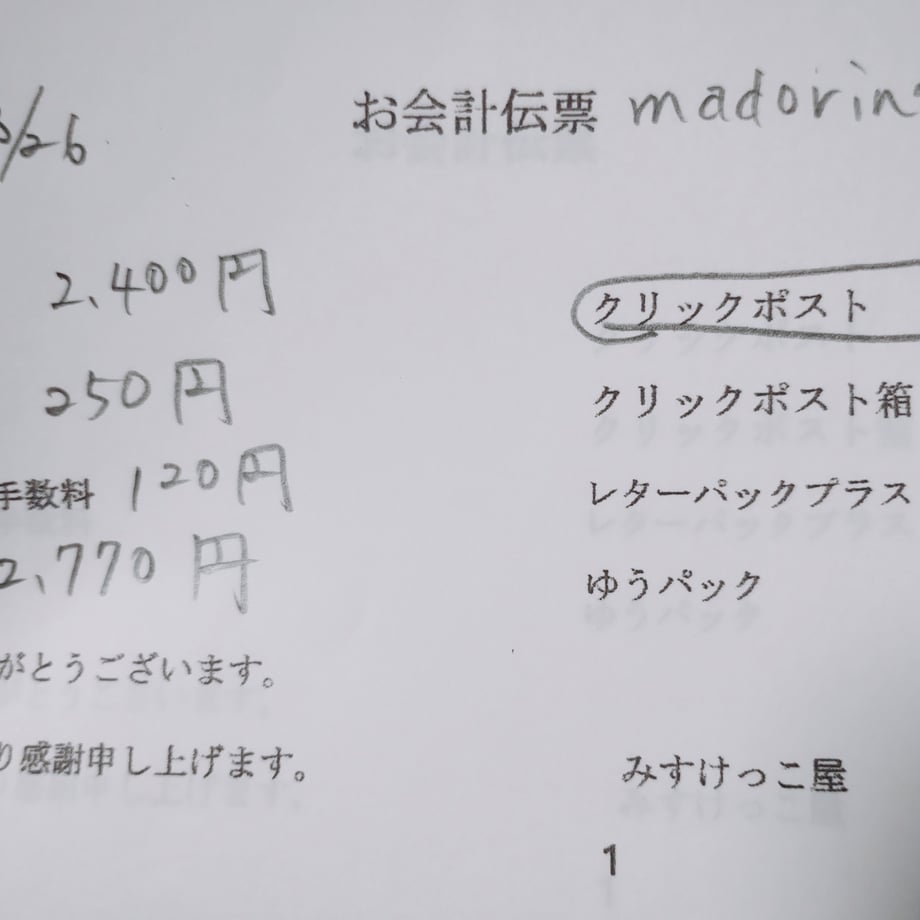 /26 お会計伝票 madorin
2,400円 クリックポスト
250円 クリックポスト箱
手数料 120円 レターパックプラス
2,770円 ゆうパック
がとうございます。
り感謝申し上げます。 みすけっこ屋
1